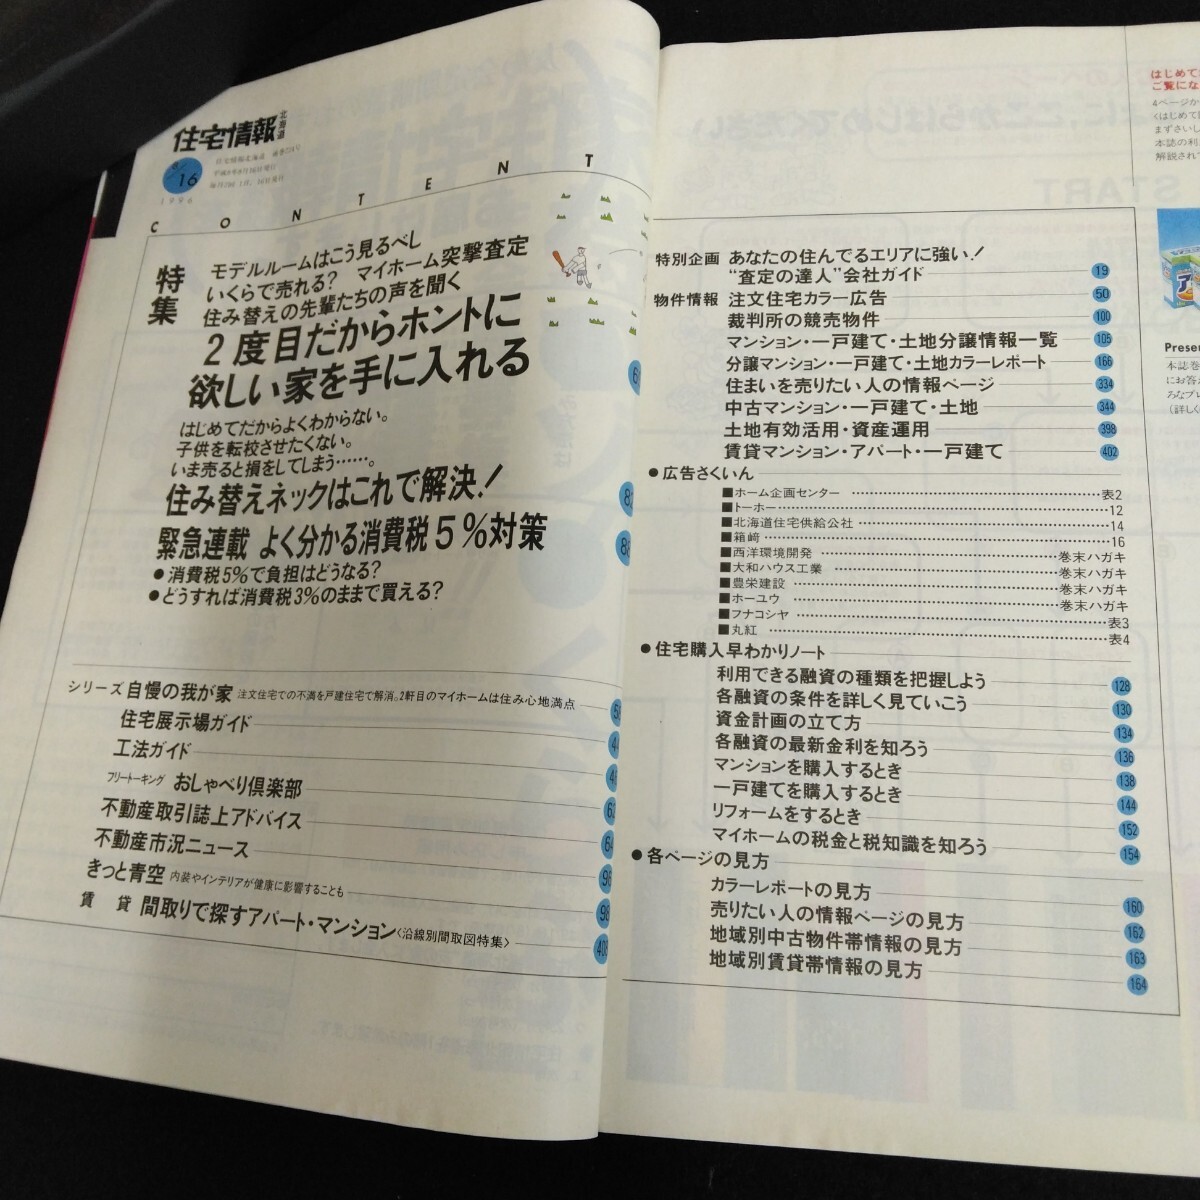 住宅情報
北海道
8/16
1996
平成8年8月16日発行
CONTENT
特集
モデルルームはこう見るべし
いくらで売れる? マイホーム突撃査定
住み替えの先輩たちの声を聞く
2度目だからホントに
欲しい家を手に入れる
はじめてだからよくわからない。
子供を転校させたくない。
いま売ると損をしてしまう……。
住み替えネックはこれで解決!
緊急連載 よく分かる消費税5%対策
●消費税5%で負担はどうなる?
●どうすれば消費税3%のままで買える?
シリーズ 自慢の我が家 注文住宅での不満を戸建住宅で解消。2軒目のマイホームは住み心地満点
住宅展示場ガイド
工法ガイド
フリートーキング おしゃべり倶楽部
不動産取引誌上アドバイス
不動産市況ニュース
きっと青空 内装やインテリアが健康に影響することも
賃貸 間取りで探すアパート・マンション〈沿線別間取図特集〉
特別企画 あなたの住んでるエリアに強い!
“査定の達人”会社ガイド 19
物件情報 注文住宅カラー広告 50
裁判所の競売物件 100
マンション・一戸建て・土地分譲情報一覧 105
分譲マンション・一戸建て・土地カラーレポート 166
住まいを売りたい人の情報ページ 334
中古マンション・一戸建て・土地 344
土地有効活用・資産運用 398
賃貸マンション・アパート・一戸建て 402
●広告さくいん
■ホーム企画センター 表2
■トーホー 12
■北海道住宅供給公社 14
■箱崎 16
■西洋環境開発 巻末ハガキ
■大和ハウス工業 巻末ハガキ
■豊栄建設 巻末ハガキ
■ホーユウ 巻末ハガキ
■フナコシヤ 表3
■丸紅 表4
●住宅購入早わかりノート
利用できる融資の種類を把握しよう 128
各融資の条件を詳しく見ていこう 130
資金計画の立て方 134
各融資の最新金利を知ろう 136
マンションを購入するとき 138
一戸建てを購入するとき 144
リフォームをするとき 152
マイホームの税金と税知識を知ろう 154
●各ページの見方
カラーレポートの見方 160
売りたい人の情報ページの見方 162
地域別中古物件帯情報の見方 163
地域別賃貸帯情報の見方 164
はじめて
ご覧にな
4ページか
くはじめて
まずさいし
本誌の利
解説されて
Presen
本誌巻
にお答
ろなプレ
(詳しく